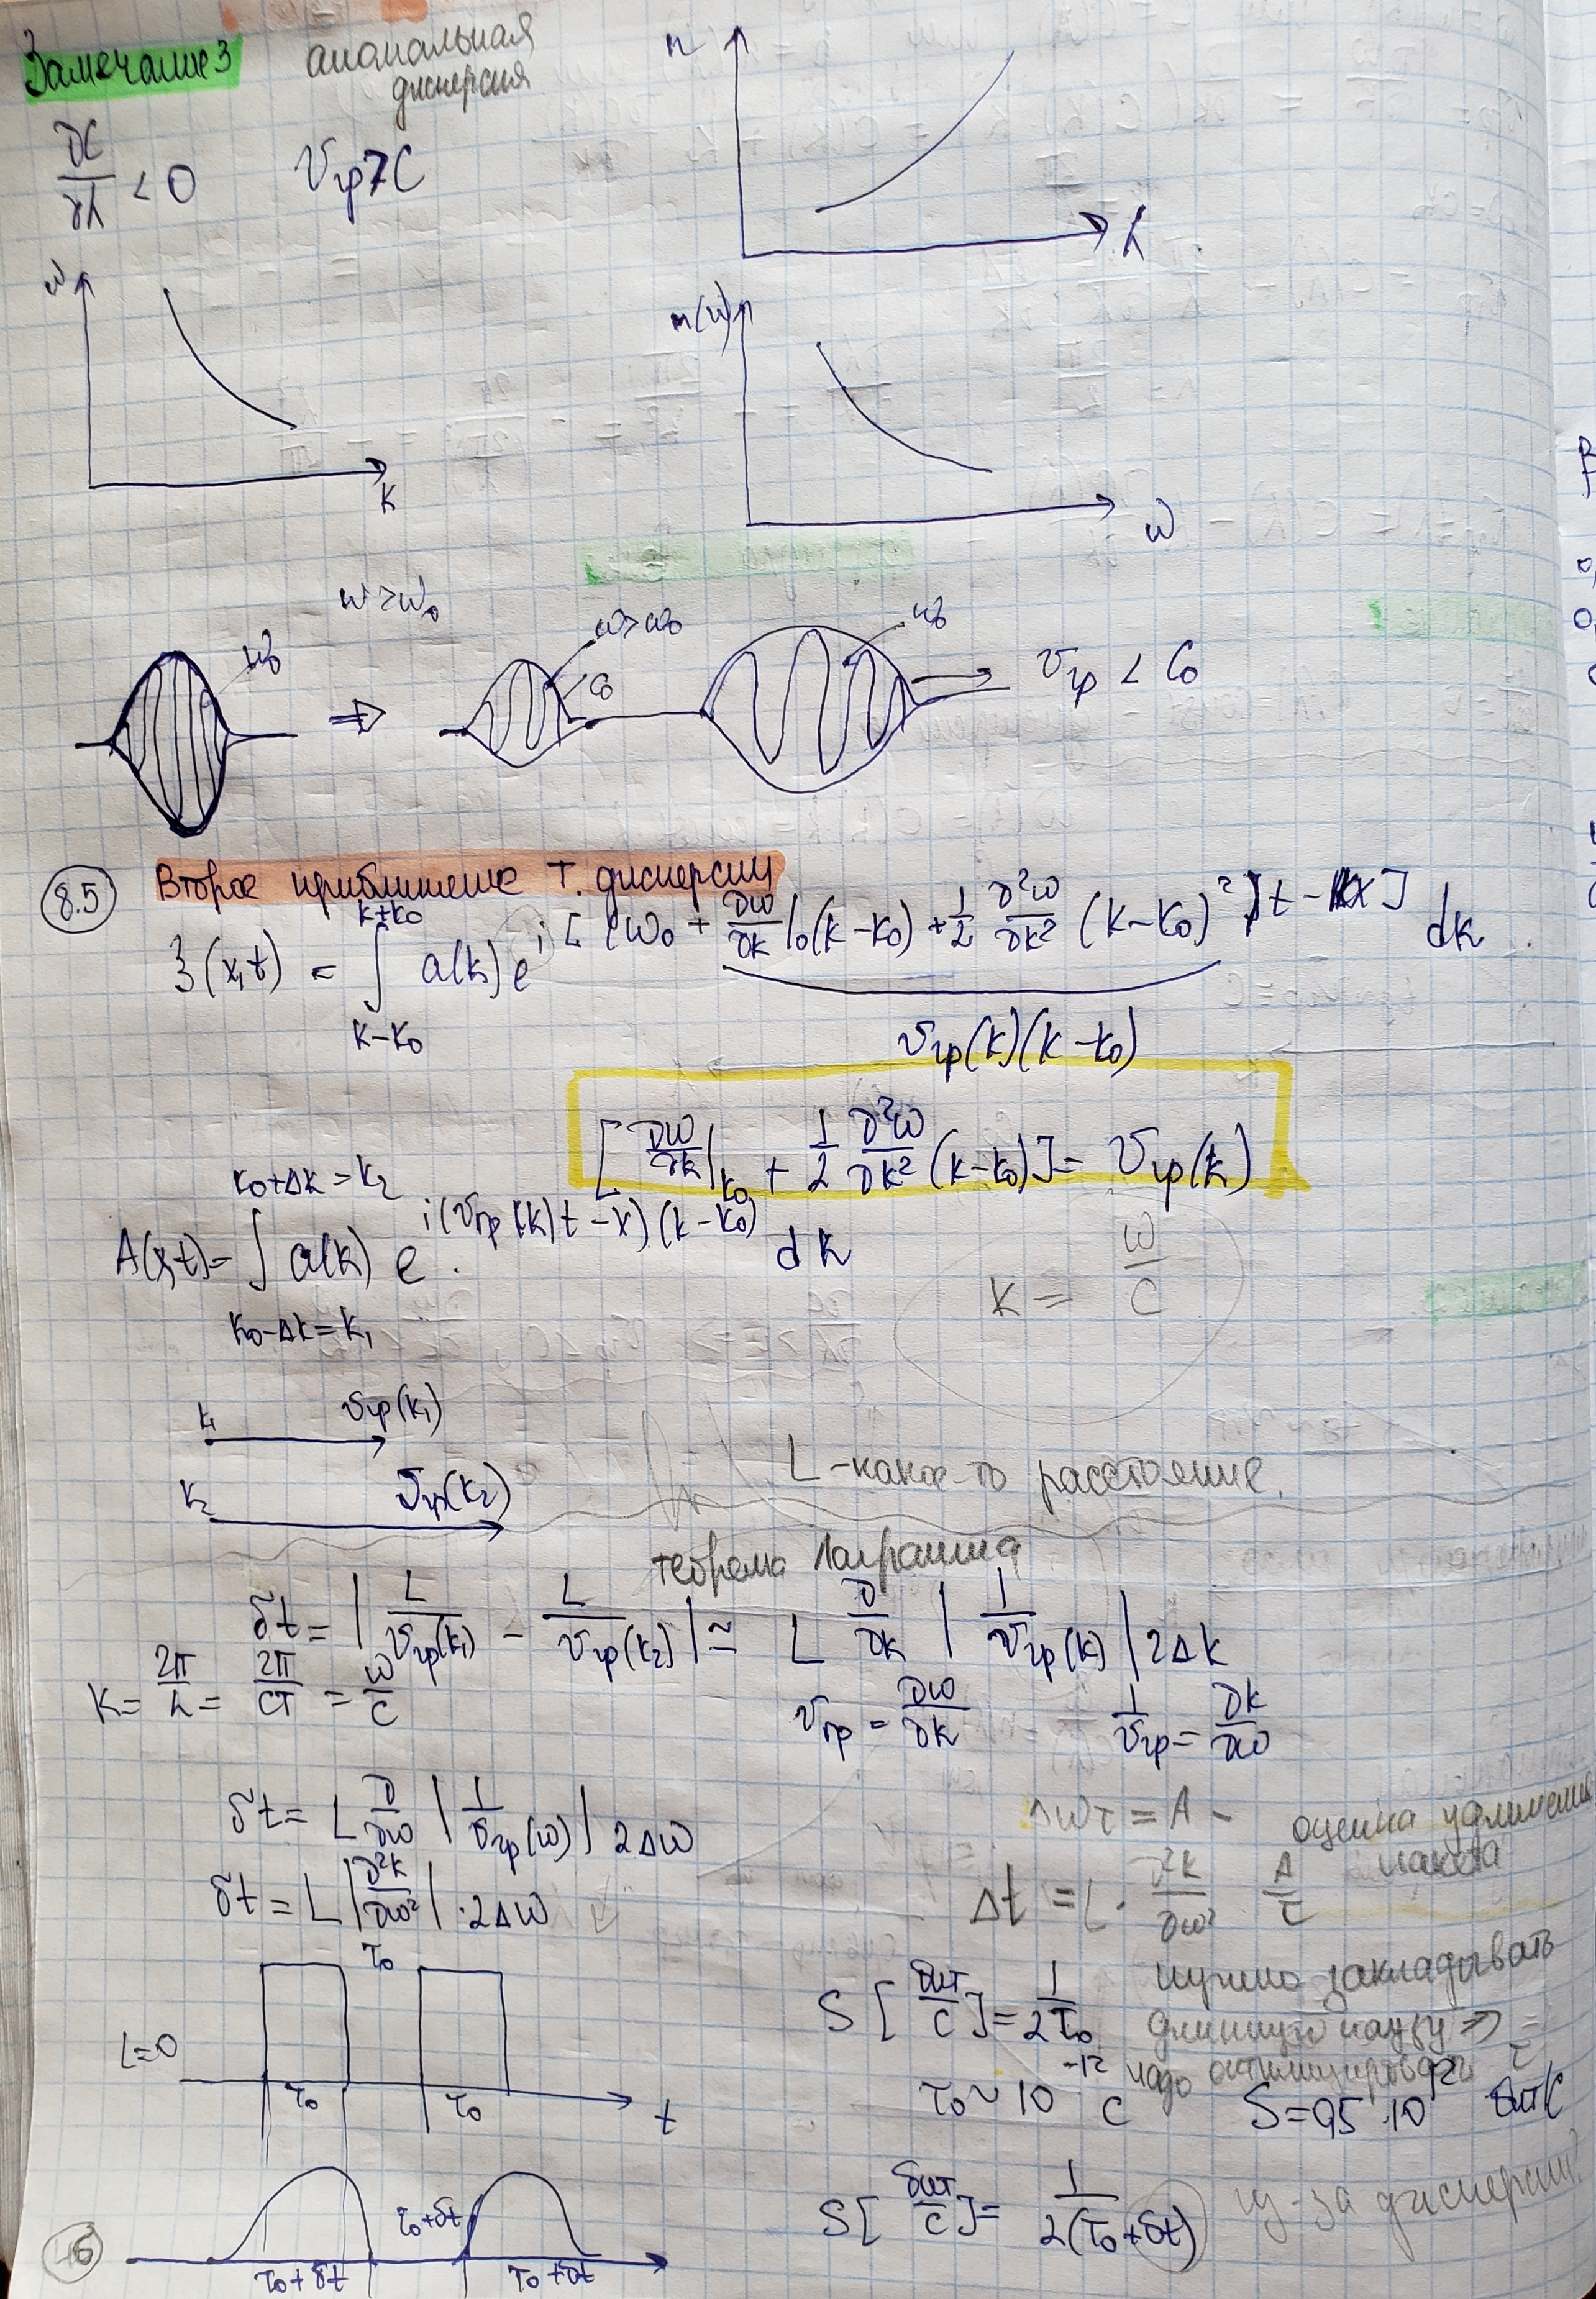 Замечание 3 аномальная
дисперсия
∂C/∂λ < 0 υгр > C
n
λ
ω
k
n(ω)
ω
ω > ω₀
ω₀ ⇒ ω>ω₀ C₀ ω₀ υгр < C₀
8.5 Второе приближение т. дисперсии
ξ(x,t) = ∫_{k-k₀}^{k+k₀} a(k) e^{i[(ω₀ + ∂ω/∂k|₀(k-k₀) + 1/2 ∂²ω/∂k² (k-k₀)²)t - kx]} dk
υгр(k)(k-k₀)
[∂ω/∂k|_{k₀} + 1/2 ∂²ω/∂k² (k-k₀)] = υгр(k)
A(x,t) = ∫_{k₀-Δk=k₁}^{k₀+Δk=k₂} a(k) e^{i(υгр(k)t - x)(k-k₀)} dk
k = ω/C
k₁ υгр(k₁)
k₂ υгр(k₂)
L - какое-то расстояние.
теорема Лагранжа
δt = |L/υгр(k₁) - L/υгр(k₂)| ≃ L ∂/∂k |1/υгр(k)| 2Δk
k = 2π/λ = 2π/CT = ω/C
υгр = ∂ω/∂k 1/υгр = ∂k/∂ω
δt = L ∂/∂ω |1/υгр(ω)| 2Δω
Δωτ = A - оценка удлинения
пакета
δt = L |∂²k/∂ω²| · 2Δω
Δt = L · ∂²k/∂ω² · A/τ
τ₀
L=0
τ₀ τ₀ t
S [бит/с] = 1/2τ₀
нужно закладывать
длинную паузу ⇒
надо оптимизировать τ
τ₀ ~ 10⁻¹² с S = 0,5 · 10¹² бит/с
τ₀+δt
τ₀+δt τ₀+δt
S [бит/с] = 1/2(τ₀+δt) из-за дисперсии
46